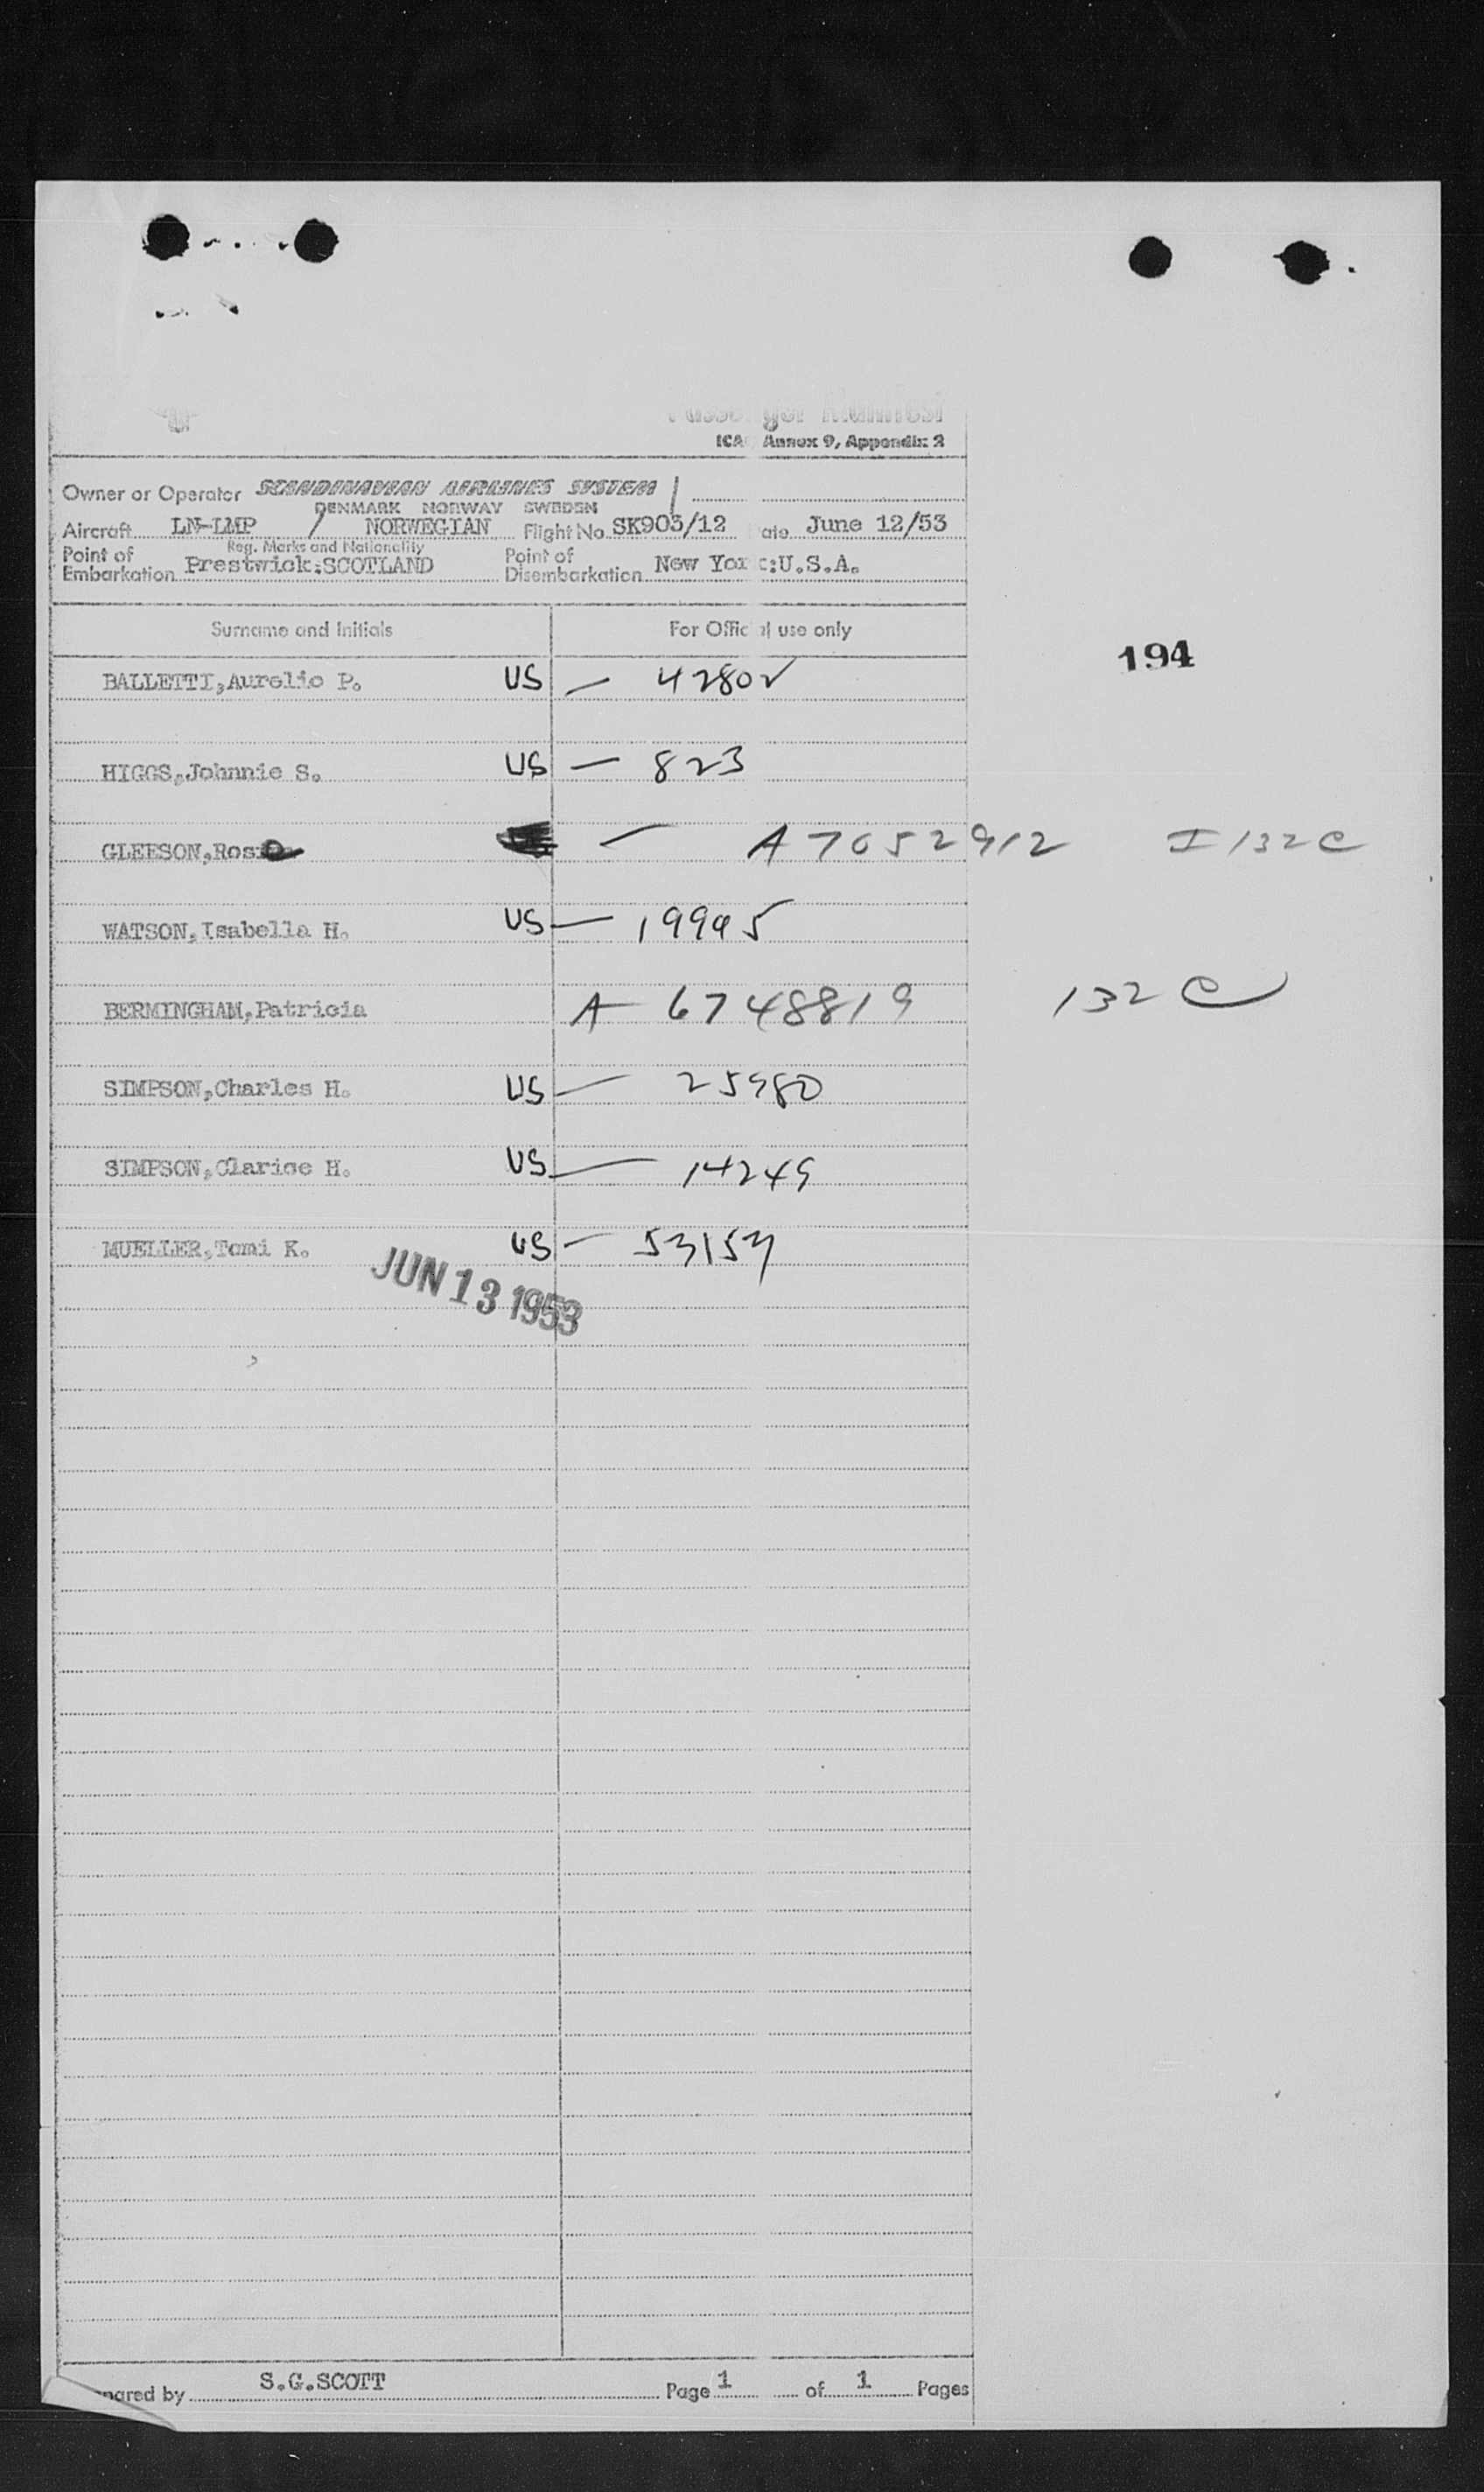 Passenger Manifest
ICA Annex 9, Appendix 2
Owner or Operator SCANDINAVIAN AIRLINES SYSTEM
DENMARK NORWAY SWEDEN
Aircraft LN-LMP / NORWEGIAN Flight No. SK903/12 ate June 12/53
Reg. Marks and Nationality
Point of Embarkation Prestwick:SCOTLAND Point of Disembarkation New York:U.S.A.
Surname and Initials For Official use only
194
BALLETTI,Aurelio P. US — 42802
HIGGS,Johnnie S. US — 823
GLEESON,Rosie — A7052912 I 132C
WATSON,Isabella H. US — 19995
BERMINGHAM,Patricia A 6748819 132 C
SIMPSON,Charles H. US — 25980
SIMPSON,Clarice H. US — 14249
MUELLER,Tomi K. US — 53153
JUN 13 1953
pared by S.G.SCOTT Page 1 of 1 Pages